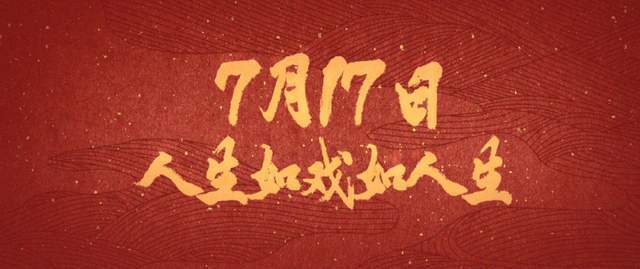 7月17日
人生如戏如人生